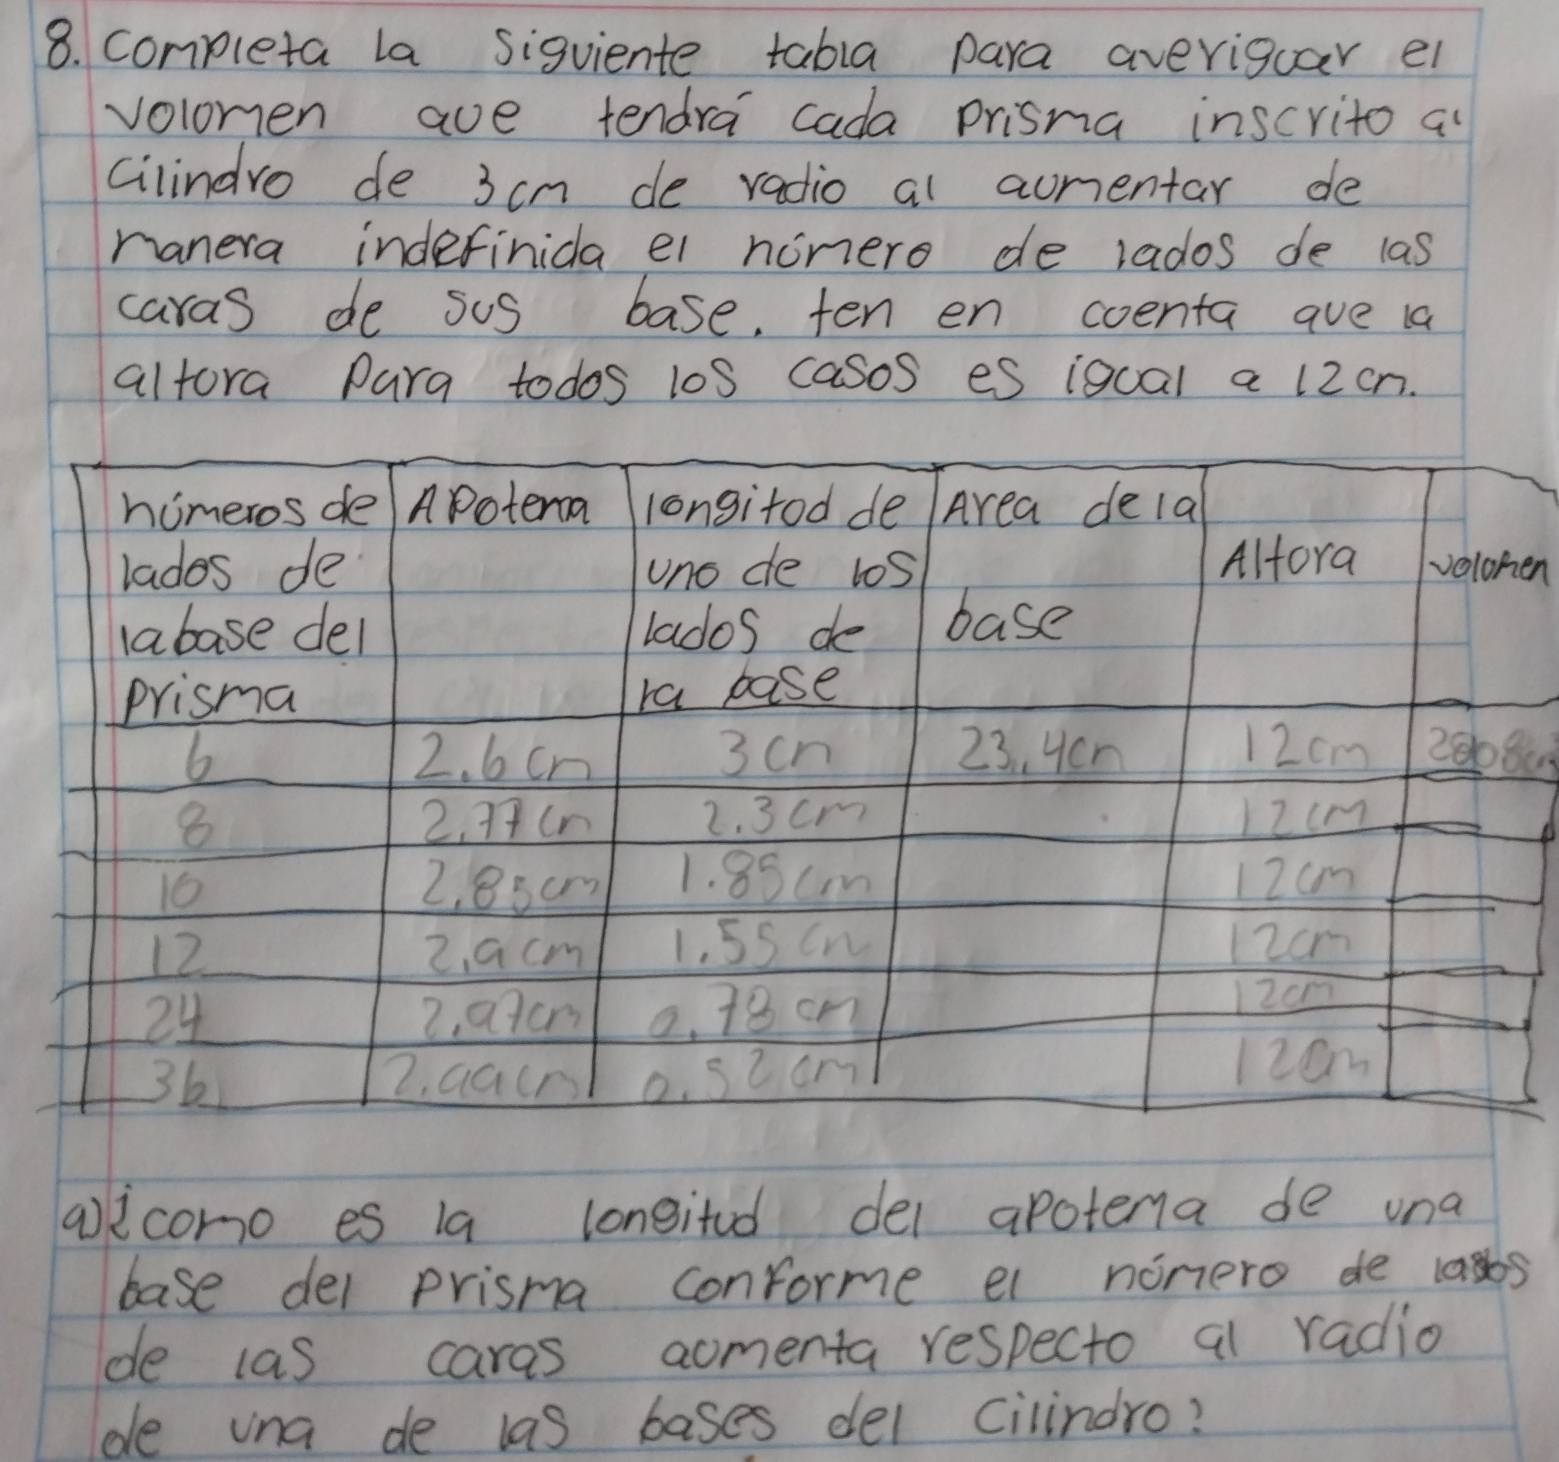 8. completa la siguiente tabla para averiguar el
volumen que tendrá cada prisma inscrito al
cilindro de 3cm de radio al aumentar de
manera indefinida el número de lados de las
caras de sus base. ten en cuenta que la
altura para todos los casos es igual a 12cm.
números de lados de la base del prisma | Apotema | longitud de uno de los lados de la base | Area de la base | Altura | volumen
6 | 2.6cm | 3cm | 23.4cm | 12cm | 280.8cm
8 | 2.77cm | 2.3cm | | 12cm |
10 | 2.85cm | 1.85cm | | 12cm |
12 | 2.9cm | 1.55cm | | 12cm |
24 | 2.97cm | 0.78cm | | 12cm |
36 | 2.99cm | 0.52cm | | 12cm |
a) ¿como es la longitud del apotema de una
base del prisma conforme el número de lados
de las caras aumenta respecto al radio
de una de las bases del cilindro?